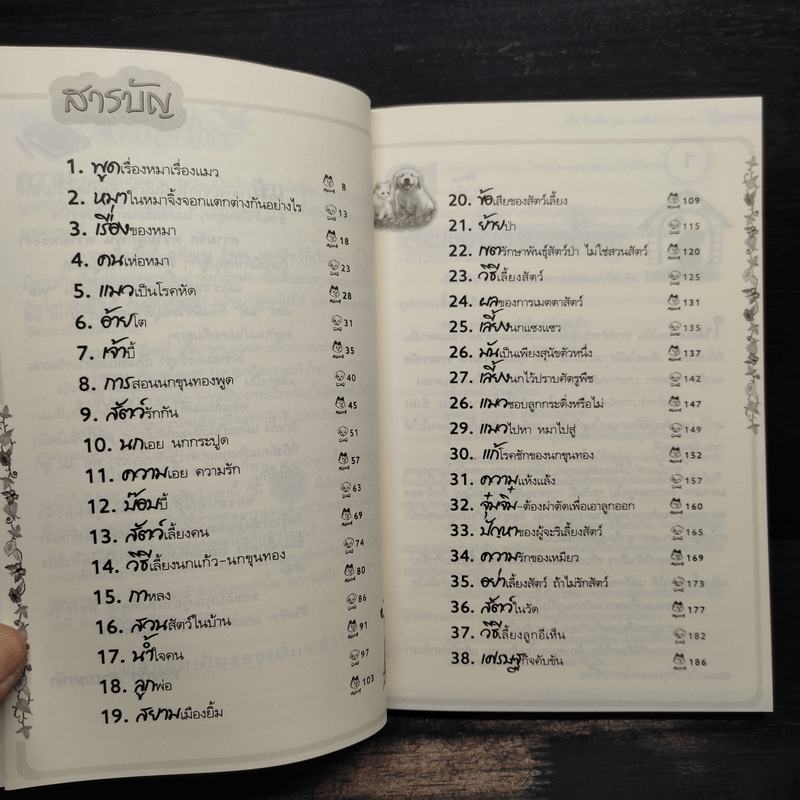 สารบัญ
1. พูดเรื่องหมาเรื่องแมว 8
2. หมาในหมาจิ้งจอกแตกต่างกันอย่างไร 13
3. เรื่องของหมา 18
4. คนเห่อหมา 23
5. แมวเป็นโรคหัด 28
6. อ้ายโต 31
7. เจ้าบี้ 35
8. การสอนนกขุนทองพูด 40
9. สัตว์รักกัน 45
10. นกเอย นกกระปูด 51
11. ความเอย ความรัก 57
12. บ๊อบบี้ 63
13. สัตว์เลี้ยงคน 69
14. วิธีเลี้ยงนกแก้ว-นกขุนทอง 74
15. กาหลง 80
16. สวนสัตว์ในบ้าน 86
17. น้ำใจคน 91
18. ลูกพ่อ 97
19. สยามเมืองยิ้ม 103
20. ข้อเสียของสัตว์เลี้ยง 109
21. ย้ายป่า 115
22. เขตรักษาพันธุ์สัตว์ป่า ไม่ใช่สวนสัตว์ 120
23. วิธีเลี้ยงสัตว์ 125
24. ผลของการเมตตาสัตว์ 131
25. เลี้ยงนกแซงแซว 135
26. มันเป็นเพียงสุนัขตัวหนึ่ง 137
27. เลี้ยงนกไว้ปราบศัตรูพืช 142
26. แมวชอบลูกกระดิ่งหรือไม่ 147
29. แมวไปหา หมาไปสู่ 149
30. แก้โรคชักของนกขุนทอง 152
31. ความแห้งแล้ง 157
32. จุ๋มจิ๋ม-ต้องผ่าตัดเพื่อเอาลูกออก 160
33. ปัญหาของผู้จะริเลี้ยงสัตว์ 165
34. ความรักของเหมียว 169
35. อย่าเลี้ยงสัตว์ ถ้าไม่รักสัตว์ 173
36. สัตว์ในวัด 177
37. วิธีเลี้ยงลูกอีเห็น 182
38. เศรษฐกิจคับขัน 186